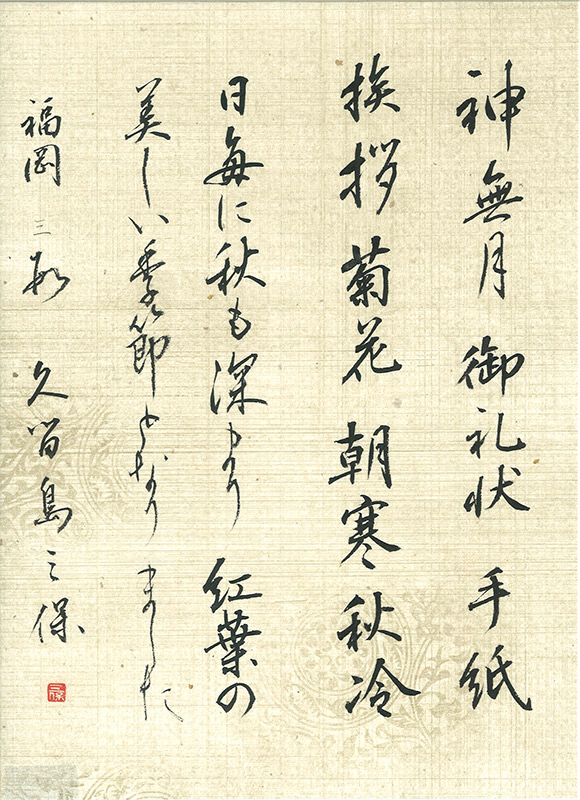 神無月 御礼状 手紙
挨拶 菊花 朝寒 秋冷
日毎に秋も深まり 紅葉の
美しい季節となりました
福岡 三段 久留島三保